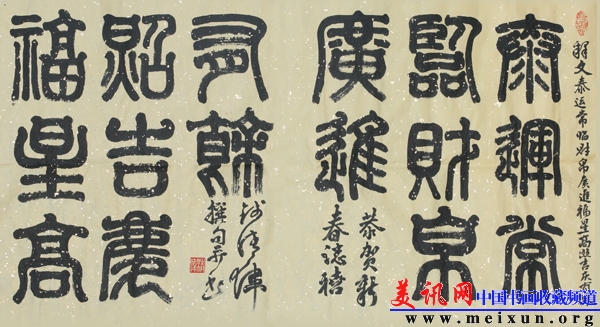 釋文泰运常临财帛广進福星高照吉庆有
泰運常
臨財帛
廣進
恭贺新
春志禧
福星高
照吉慶
有餘
撰句并书
美讯网
中国书画收藏频道
www.meixun.org